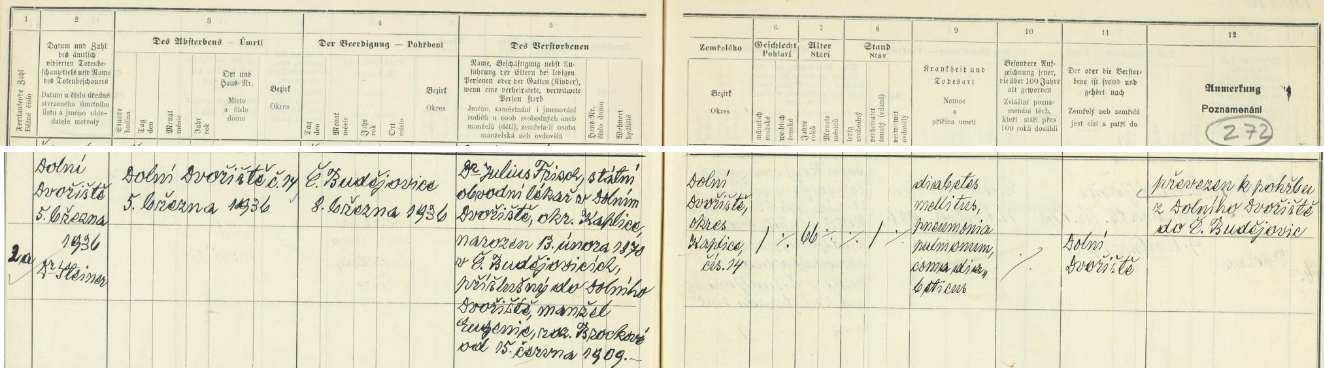 1
2
3
5
6
7
8
9
10
11
12
Fortlaufende Zahl
Běžné číslo
Datum und Zahl
des ämtlich
vidierten Totenbe-
schauzettels und Name
des Totenbeschauers
Datum a číslo úředně
stvrzeného úmrtního
listu a jméno ohle-
datele mrtvoly
Des Absterbens — Úmrtí
Stunde
hodina
Tag
den
Monat
měsíc
Jahr
rok
Ort und
Haus-Nr.
Místo
a číslo
domu
Bezirk
Okres
Der Beerdigung — Pohřbení
Tag
den
Monat
měsíc
Jahr
rok
Ort
místo
Bezirk
Okres
Des Verstorbenen
Name, Beschäftigung nebst An-
führung der Eltern bei ledigen
Personen oder der Gatten (Kinder),
wenn eine verheiratete, verwitwete
Person starb
Jméno, zaměstnání i jmenování
rodičů u osob svobodných aneb
manželů (dětí), zemřela-li osoba
manželská neb ovdovělá
Haus-Nr.
číslo domu
Wohnort
bydliště
Zemřelého
Bezirk
Okres
Geschlecht
Pohlaví
männlich
mužské
weiblich
ženské
Alter
Stáří
Jahre
roků
Monate
měsíců
Stand
Stav
ledig
svobodný
verheiratet
ženatý (vdaná)
verwitwet
ovdovělý
Krankheit und
Todesart
Nemoc
a
příčina úmrtí
Besondere Auf-
zeichnung jener,
die über 100 Jahre
alt geworden
Zvláštní pozna-
menání těch,
kteří stáří přes
100 roků dosáhli
Der oder die Verstor-
bene ist fremd und
gehört nach
Zemřelý neb zemřelá
jest cizí a patří do
Anmerkung
Poznamenání
272
2a
Dolní
Dvořiště
5. března
1936
Dr Steiner
Dolní Dvořiště č. 14
5. března 1936
Č. Budějovice
8. března 1936
Dr. Julius Frisch, státní
obvodní lékař v Dolním
Dvořišti, okr. Kaplice,
narozen 13. února 1870
v Č. Budějovicích,
příslušný do Dolního
Dvořiště, manžel
Eugenie, roz. Brockové
od 15. června 1909.—
Dolní
Dvořiště,
okres
Kaplice,
čís. 14
1 ·/· 66 ·/· ·/· 1 ·/·
diabetes
mellitus,
pneumonia
pulmonum,
coma dia-
beticus
·/·
Dolní
Dvořiště
převezen k pohřbu
z Dolního Dvořiště
do Č. Budějovic